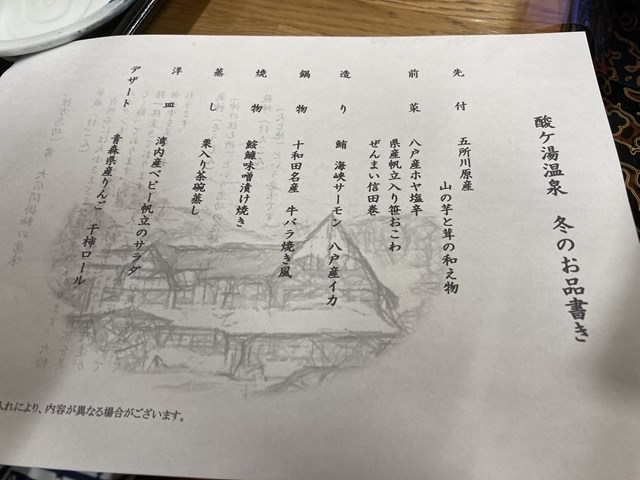 酸ケ湯温泉　冬のお品書き
先付　五所川原産
山の芋と茸の和え物
前菜　八戸産ホヤ塩辛
県産帆立入り笹おこわ
ぜんまい信田巻
造り　鮪　海峡サーモン　八戸産イカ
鍋物　十和田名産　牛バラ焼き風
焼物　鮟鱇味噌漬け焼き
蒸し　栗入り茶碗蒸し
洋皿　湾内産ベビー帆立のサラダ
デザート　青森県産りんご　干柿ロール
入れにより、内容が異なる場合がございます。